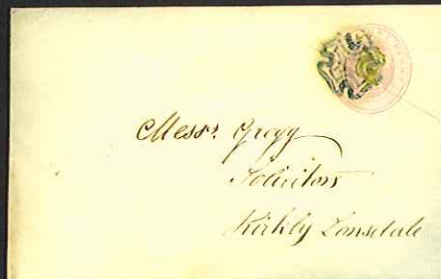 Messrs. Gregg
Solicitors
Kirkby Lonsdale